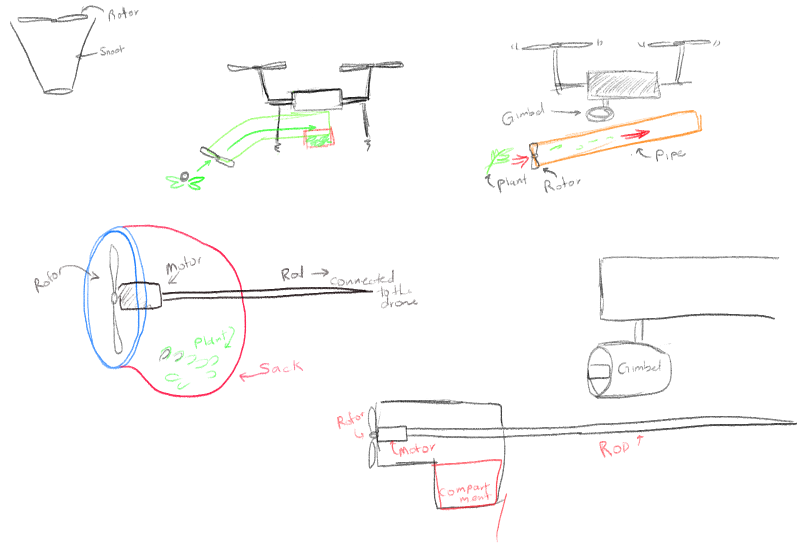 Rotor
Snoot
Gimbel
Plant
Rotor
Pipe
Rotor
Motor
Rod →
connected
to the
drone
Plant
Sack
Gimbel
Rotor
Motor
ROD
Compart
ment